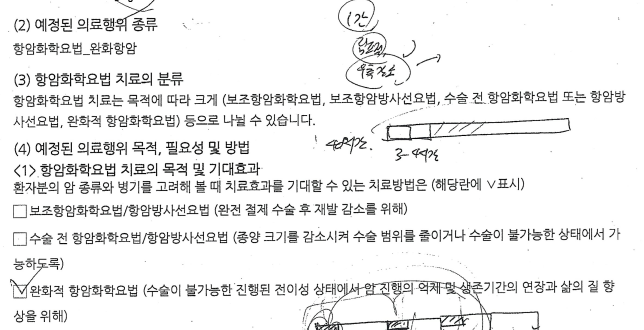 (2) 예정된 의료행위 종류
항암화학요법_완화항암
(3) 항암화학요법 치료의 분류
항암화학요법 치료는 목적에 따라 크게 (보조항암화학요법, 보조항암방사선요법, 수술 전 항암화학요법 또는 항암방
사선요법, 완화적 항암화학요법) 등으로 나뉠 수 있습니다.
3-4시간
(4) 예정된 의료행위 목적, 필요성 및 방법
<1> 항암화학요법 치료의 목적 및 기대효과
환자분의 암 종류와 병기를 고려해 볼 때 치료효과를 기대할 수 있는 치료방법은 (해당란에 ∨표시)
□보조항암화학요법/항암방사선요법 (완전 절제 수술 후 재발 감소를 위해)
□수술 전 항암화학요법/항암방사선요법 (종양 크기를 감소시켜 수술 범위를 줄이거나 수술이 불가능한 상태에서 가
능하도록)
☑완화적 항암화학요법 (수술이 불가능한 진행된 전이성 상태에서 암 진행의 억제 및 생존기간의 연장과 삶의 질 향
상을 위해)